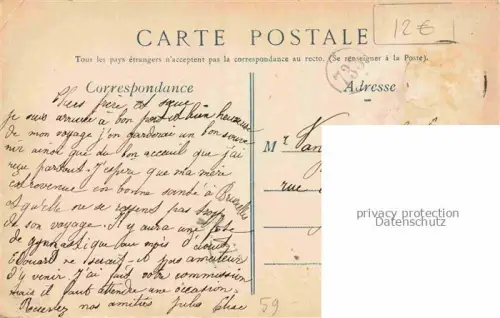 12€
CARTE POSTALE
Tous les pays étrangers n'acceptent pas la correspondance au recto. (Se renseigner à la Poste).
Correspondance
Adresse
Chers frère, et
je suis arrivée à bon port et bien heureuse
de mon voyage j'en garderai un bon souve
nir ainsi que du bon acceuil que j'ai
reçue partout. J'espère que ma mère
est revenue en bonne santé à Bruxelles
et qu'elle ne se ressent pas trop
de son voyage. Il y aura une fête
de gymnastique au mois d'août
Edouard ne serait-il pas amateur
d'y venir. J'ai fait votre commission
mais il faut attendre une occasion.
Recevez nos amitiés Jules
Mr Van
rue
privacy protection
Datenschutz
59